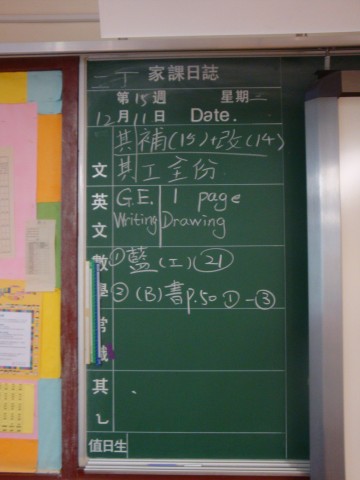 家課日誌
第15週 星期二
12月11日 Date.
其補(15)+改(14)
文 其工全份
英 G.E. 1 page
文 Writing Drawing
數 ①藍(工)(21)
學 ②(B)書p.50 ①-③
常
識
其
值日生